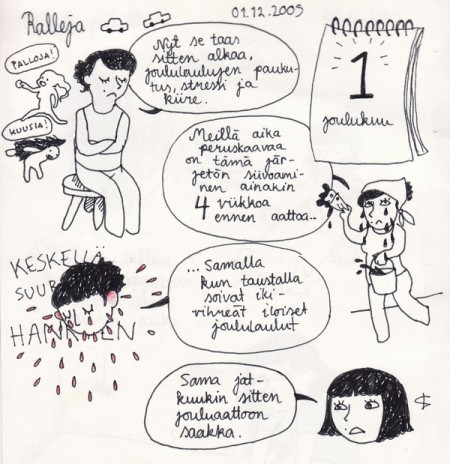 Ralleja
01.12.2005
PALLOJA!
KUUSIA!
Nyt se taas
sitten alkaa,
joululaulujen pauku-
tus, stressi ja
kiire.
1
joulukuu
Meillä aika
peruskaavaa
on tämä jär-
jetön siivoami-
nen ainakin
4 viikkoa
ennen aattoa...
KESKELLÄ
SUUR
HANKIEN
... Samalla
kun taustalla
soivat iki-
vihreät iloiset
joululaulut
Sama jat-
kuukin sitten
jouluaattoon
saakka.